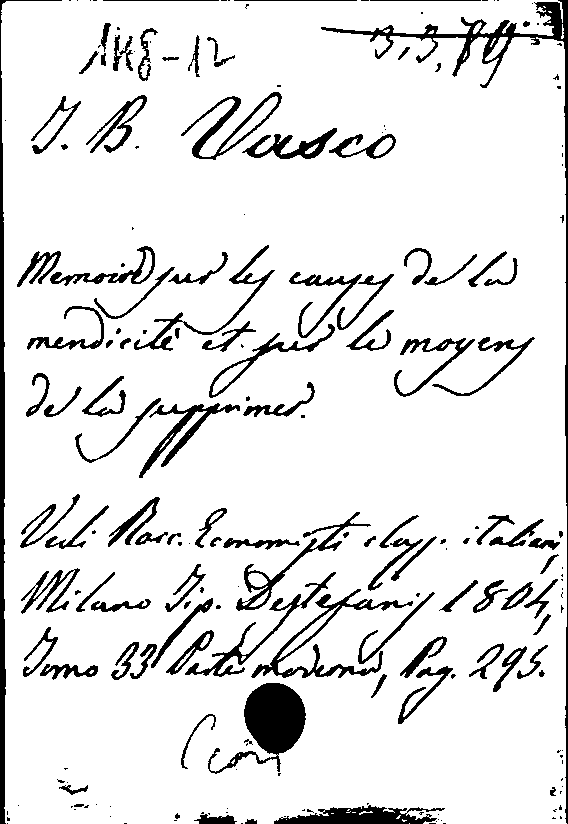 148-12
3.3.89
J. B. Vasco
Memoire sur les causes de la
mendicité et sur le moyens
de la supprimer.
Vedi Racc. Economisti class. italiani,
Milano Tip. Destefanis 1804,
Tomo 33 Parte moderna, Pag. 295.